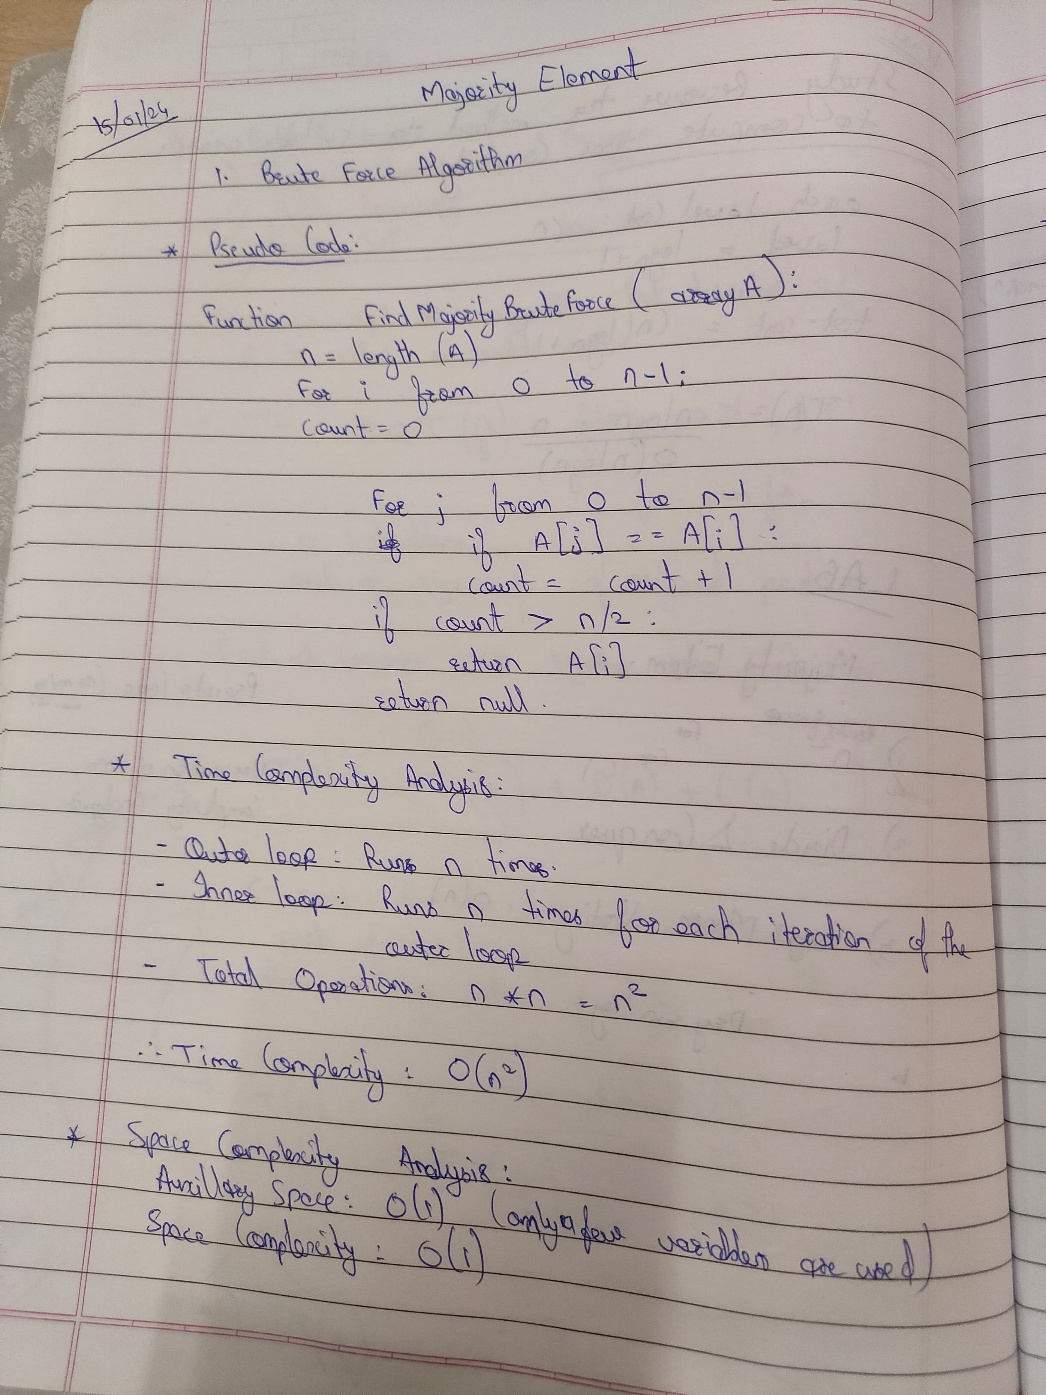 Majority Element
15/01/24
1. Brute Force Algorithm
* Pseudo Code:
Function Find Majority Brute Force (array A):
n = length (A)
For i from 0 to n-1:
Count = 0
For j from 0 to n-1
if A[j] == A[i] :
count = count + 1
if count > n/2 :
return A[i]
return null.
* Time Complexity Analysis:
- Outer loop: Runs n times.
- Inner loop: Runs n times for each iteration of the
outer loop
- Total Operations: n * n = n²
∴ Time Complexity : O(n²)
* Space Complexity Analysis :
Auxillary Space: O(1) (only a few variables are used)
Space Complexity : O(1)